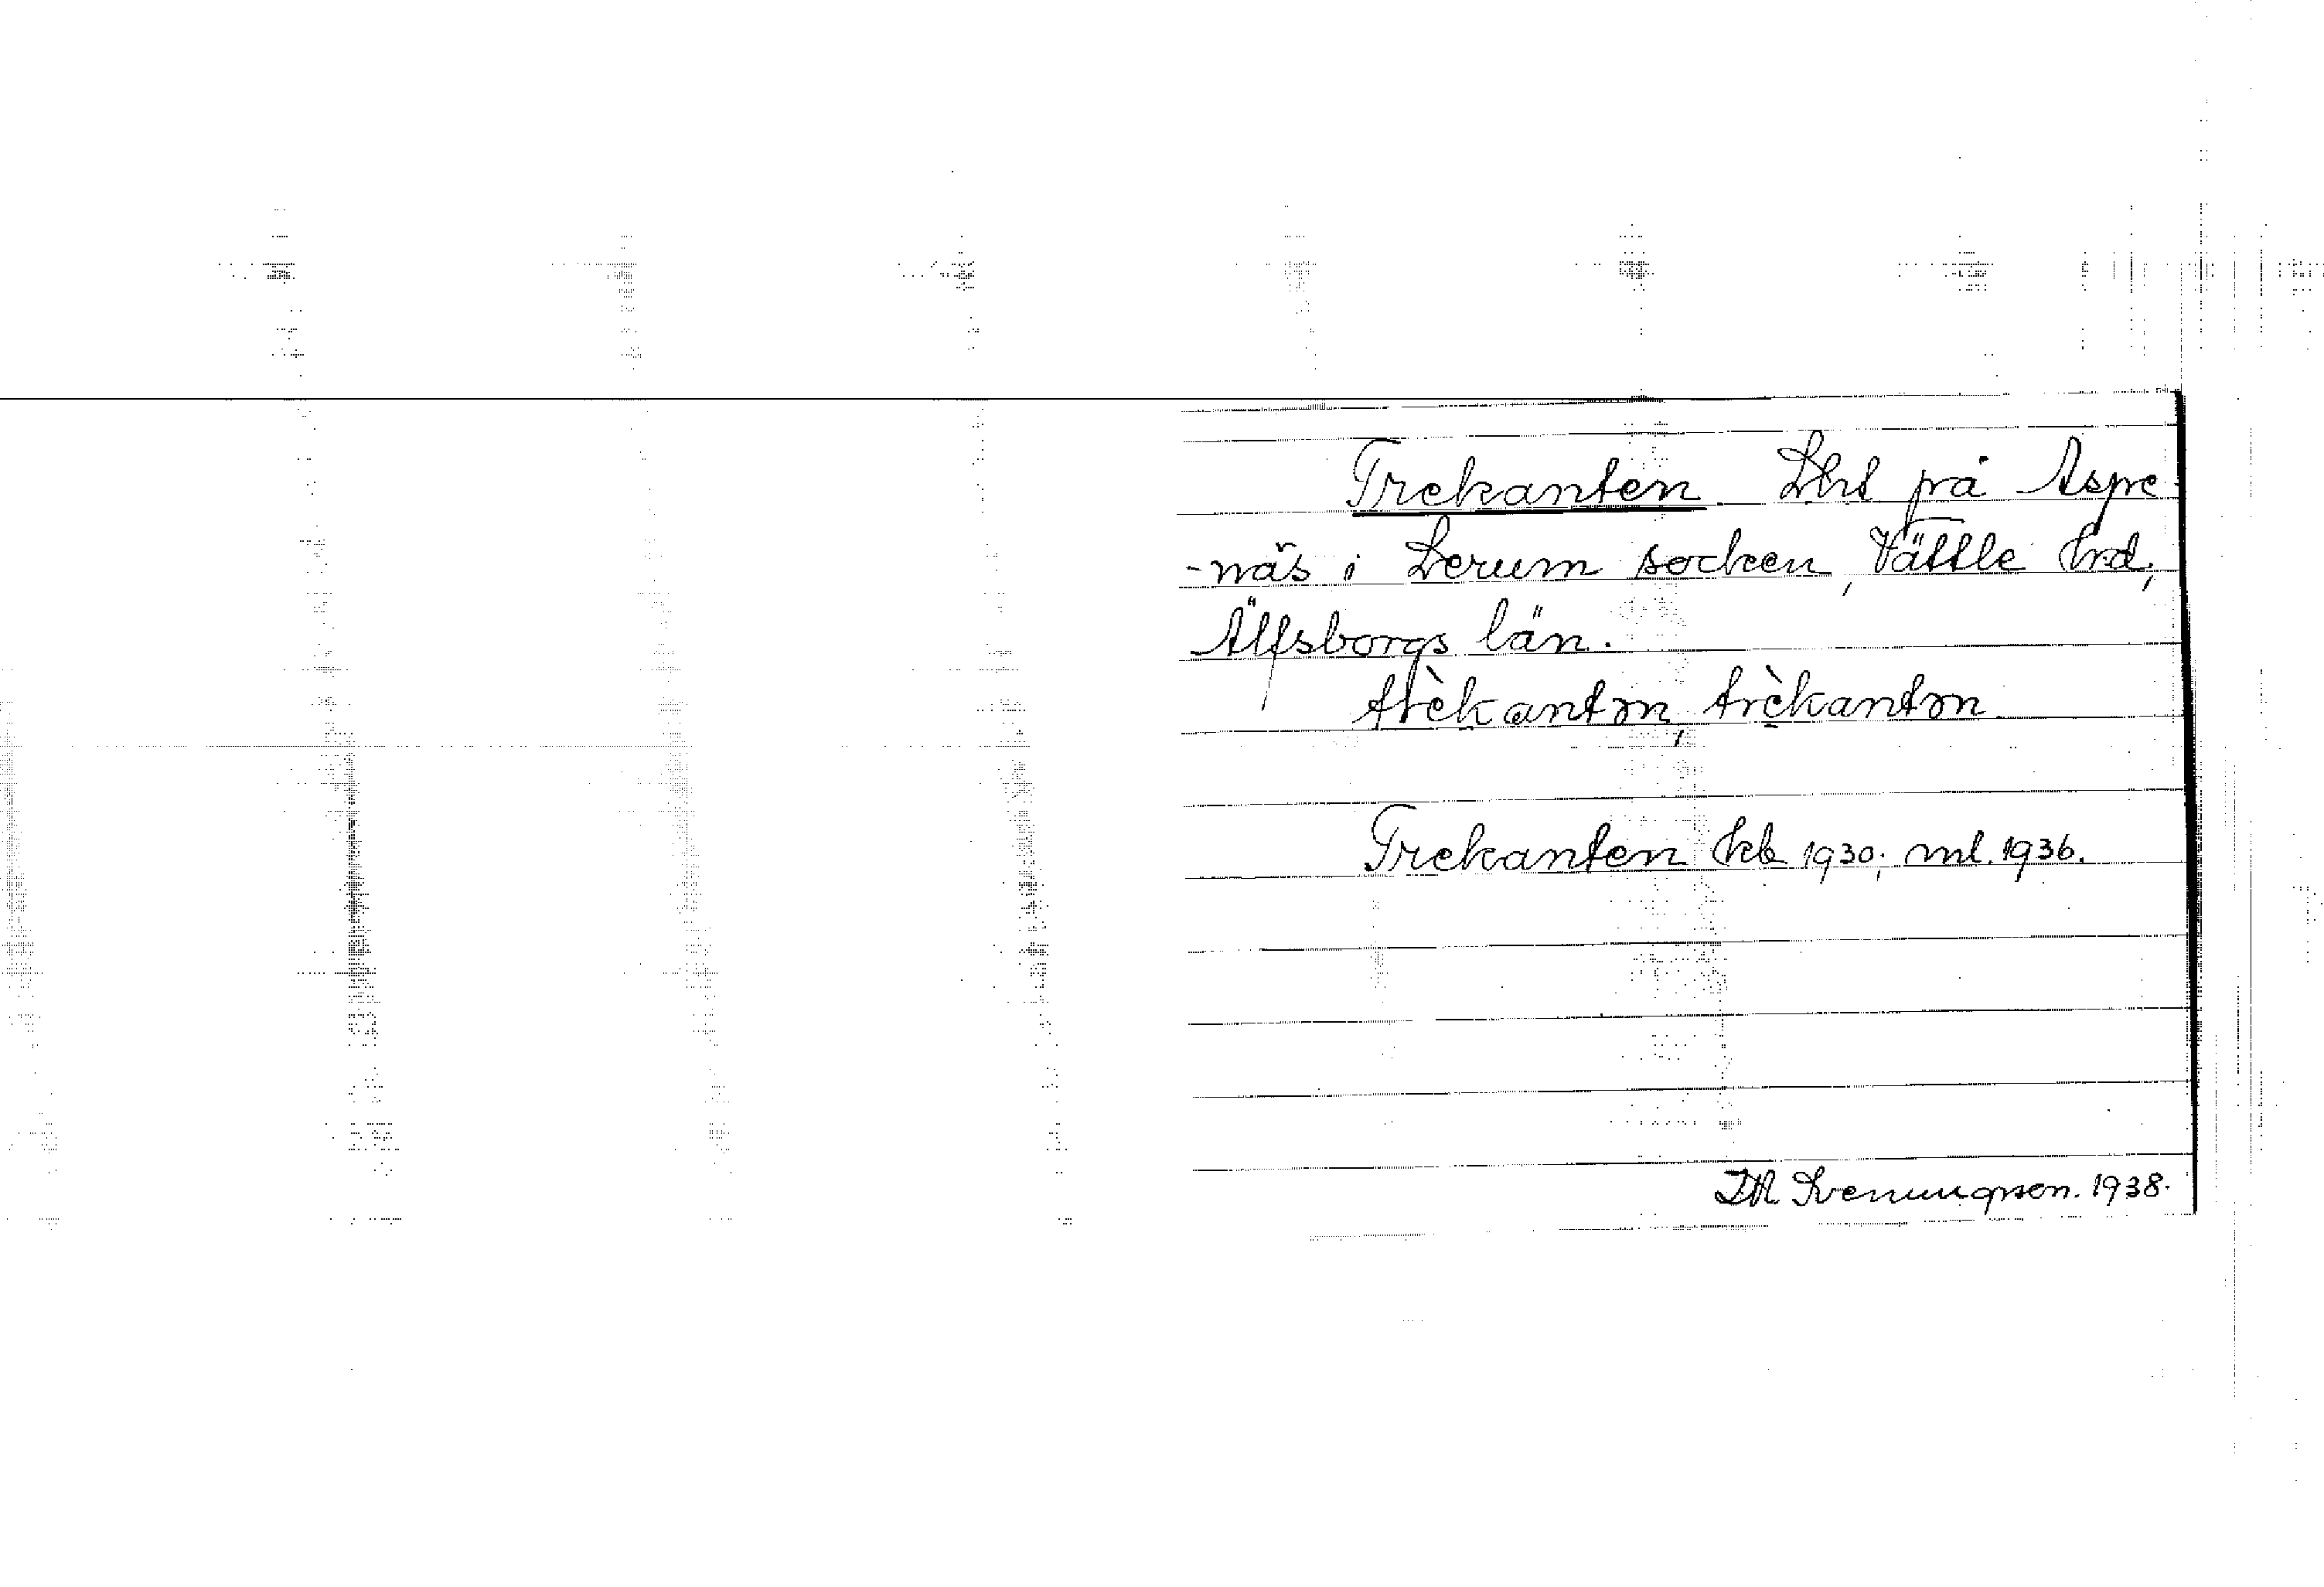 Trekanten Lht på Aspe
-näs i Lerum socken, Vättle hrd,
Älfsborgs län.
trèkantən, trèkantən
Trekanten kb 1930; ml. 1936.
Svenungson. 1938.